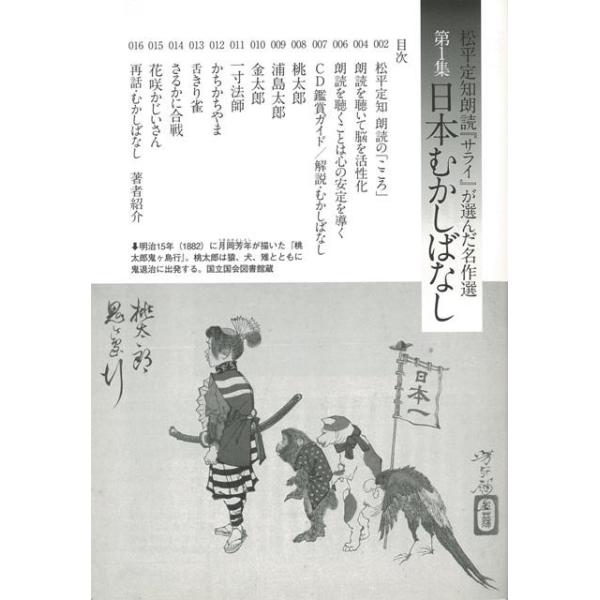 松平定知朗読『サライ』が選んだ名作選
第1集 日本むかしばなし
目次
002 松平定知 朗読の「こころ」
004 朗読を聴いて脳を活性化
006 朗読を聴くことは心の安定を導く
007 CD鑑賞ガイド/解説・むかしばなし
008 桃太郎
009 浦島太郎
010 金太郎
011 一寸法師
012 かちかちやま
013 舌きり雀
014 さるかに合戦
015 花咲かじいさん
016 再話・むかしばなし 著者紹介
⬇明治15年(1882)に月岡芳年が描いた「桃
太郎鬼ヶ島行」。桃太郎は猿、犬、雉とともに
鬼退治に出発する。国立国会図書館蔵
桃太郎
鬼ヶ島行
日本一